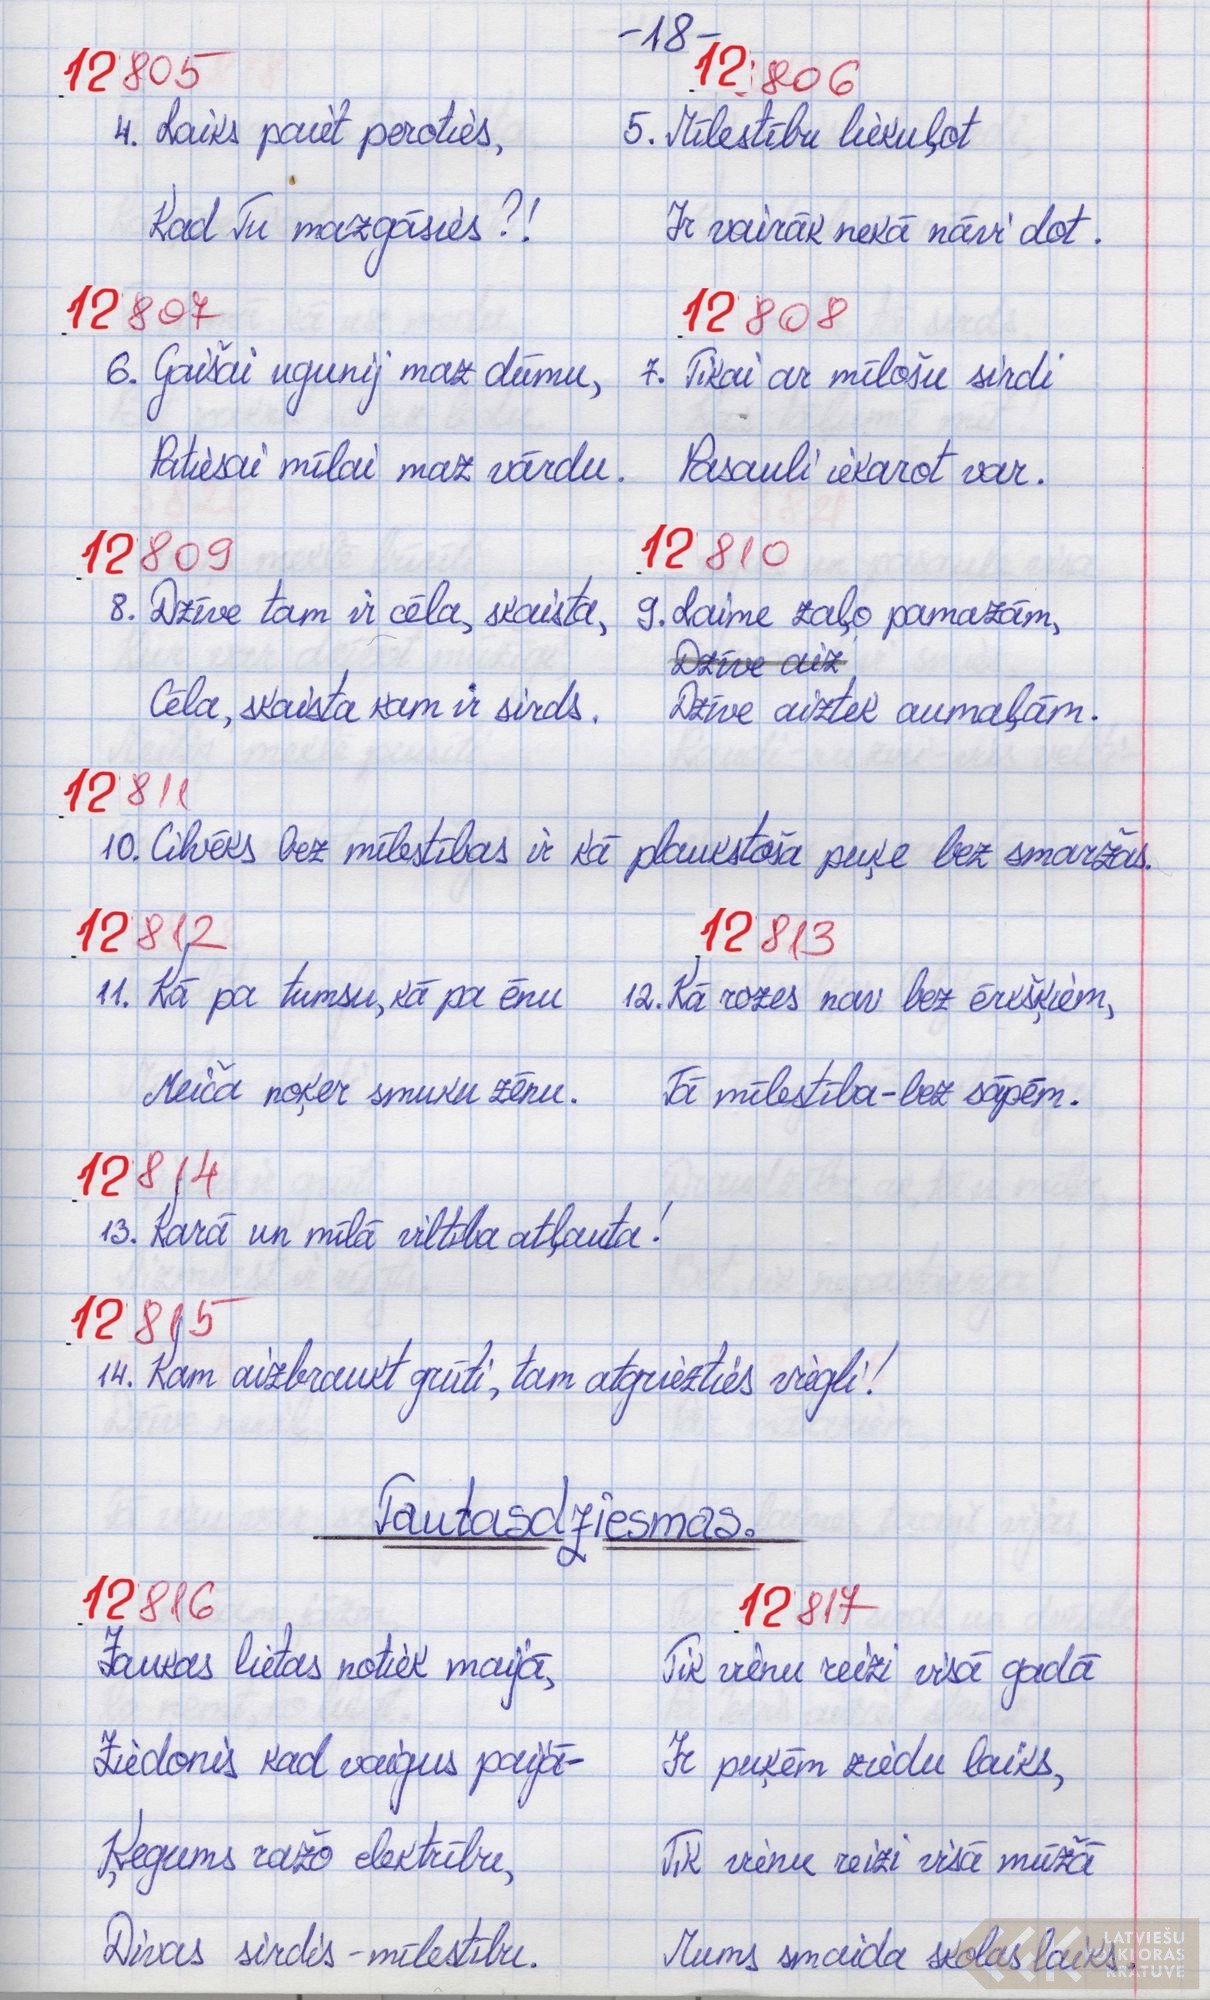 -18-
12805
4. Laiks paiet peroties,
Kad Tu mazgāsies?!
12806
5. Mīlestību liekuļot
Ir vairāk nekā nāvi dot.
12807
6. Gaišai ugunij maz dūmu,
Patiesai mīlai maz vārdu.
12808
7. Tikai ar mīlošu sirdi
Pasauli iekarot var.
12809
8. Dzīve tam ir cēla, skaista,
Cēla, skaista kam ir sirds.
12810
9. Laime zaļo pamazām,
Dzīve aiz
Dzīve aiztek aumaļām.
12811
10. Cilvēks bez mīlestības ir kā plaukstoša puķe bez smaržas.
12812
11. Kā pa tumsu, kā pa ēnu
Meiča noķer smuku zēnu.
12813
12. Kā rozes nav bez ērkšķiem,
Tā mīlestība - bez sāpēm.
12814
13. Karā un mīlā viltība atļauta!
12815
14. Kam aizbraukt grūti, tam atgriezties viegli!
Tautasdziesmas.
12816
Jaukas lietas notiek maijā,
Ziedonis kad vaigus paijā-
Ķegums ražo elektrību,
Divas sirdis - mīlestību.
12817
Tik vienu reizi visā gadā
Ir puķēm ziedu laiks,
Tik vienu reizi visā mūžā
Mums smaida skolas laiks.
LATVIEŠU
FOLKLORAS
KRĀTUVE